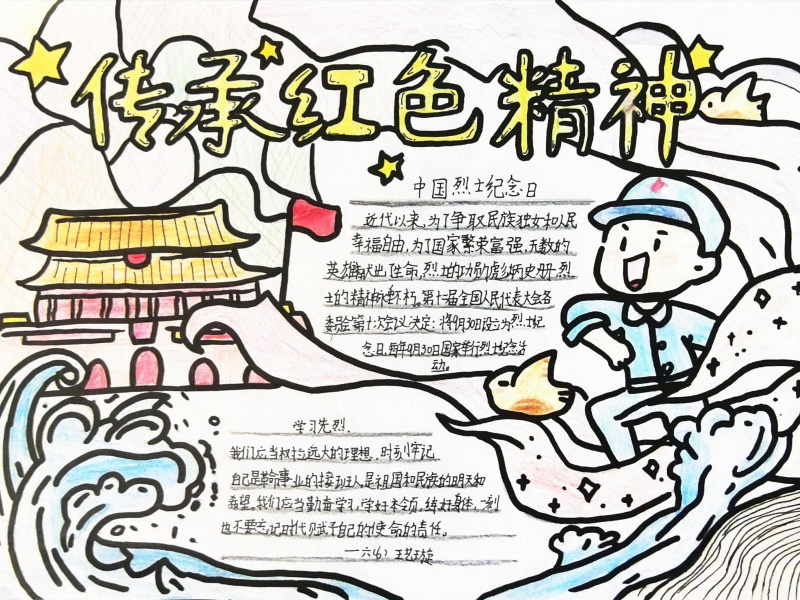 传承红色精神
中国烈士纪念日
近代以来,为了争取民族独立和人民
幸福自由,为了国家繁荣富强,无数的
英雄献出生命,烈士的功勋彪炳史册,烈
士的精神 第十二届全国人民代表大会
委员会第十次会议决定:将9月30日设立为烈士纪
念日,每年9月30日国家举行烈士纪念活
动。
学习先烈
我们应当树立远大的理想,时刻牢记
自己是 事业的接班人,是祖国和民族的明天和
希望,我们应当勤奋学习,学好本领,练好身体,一刻
也不要忘记时代赋予自己的使命的责任。
一六